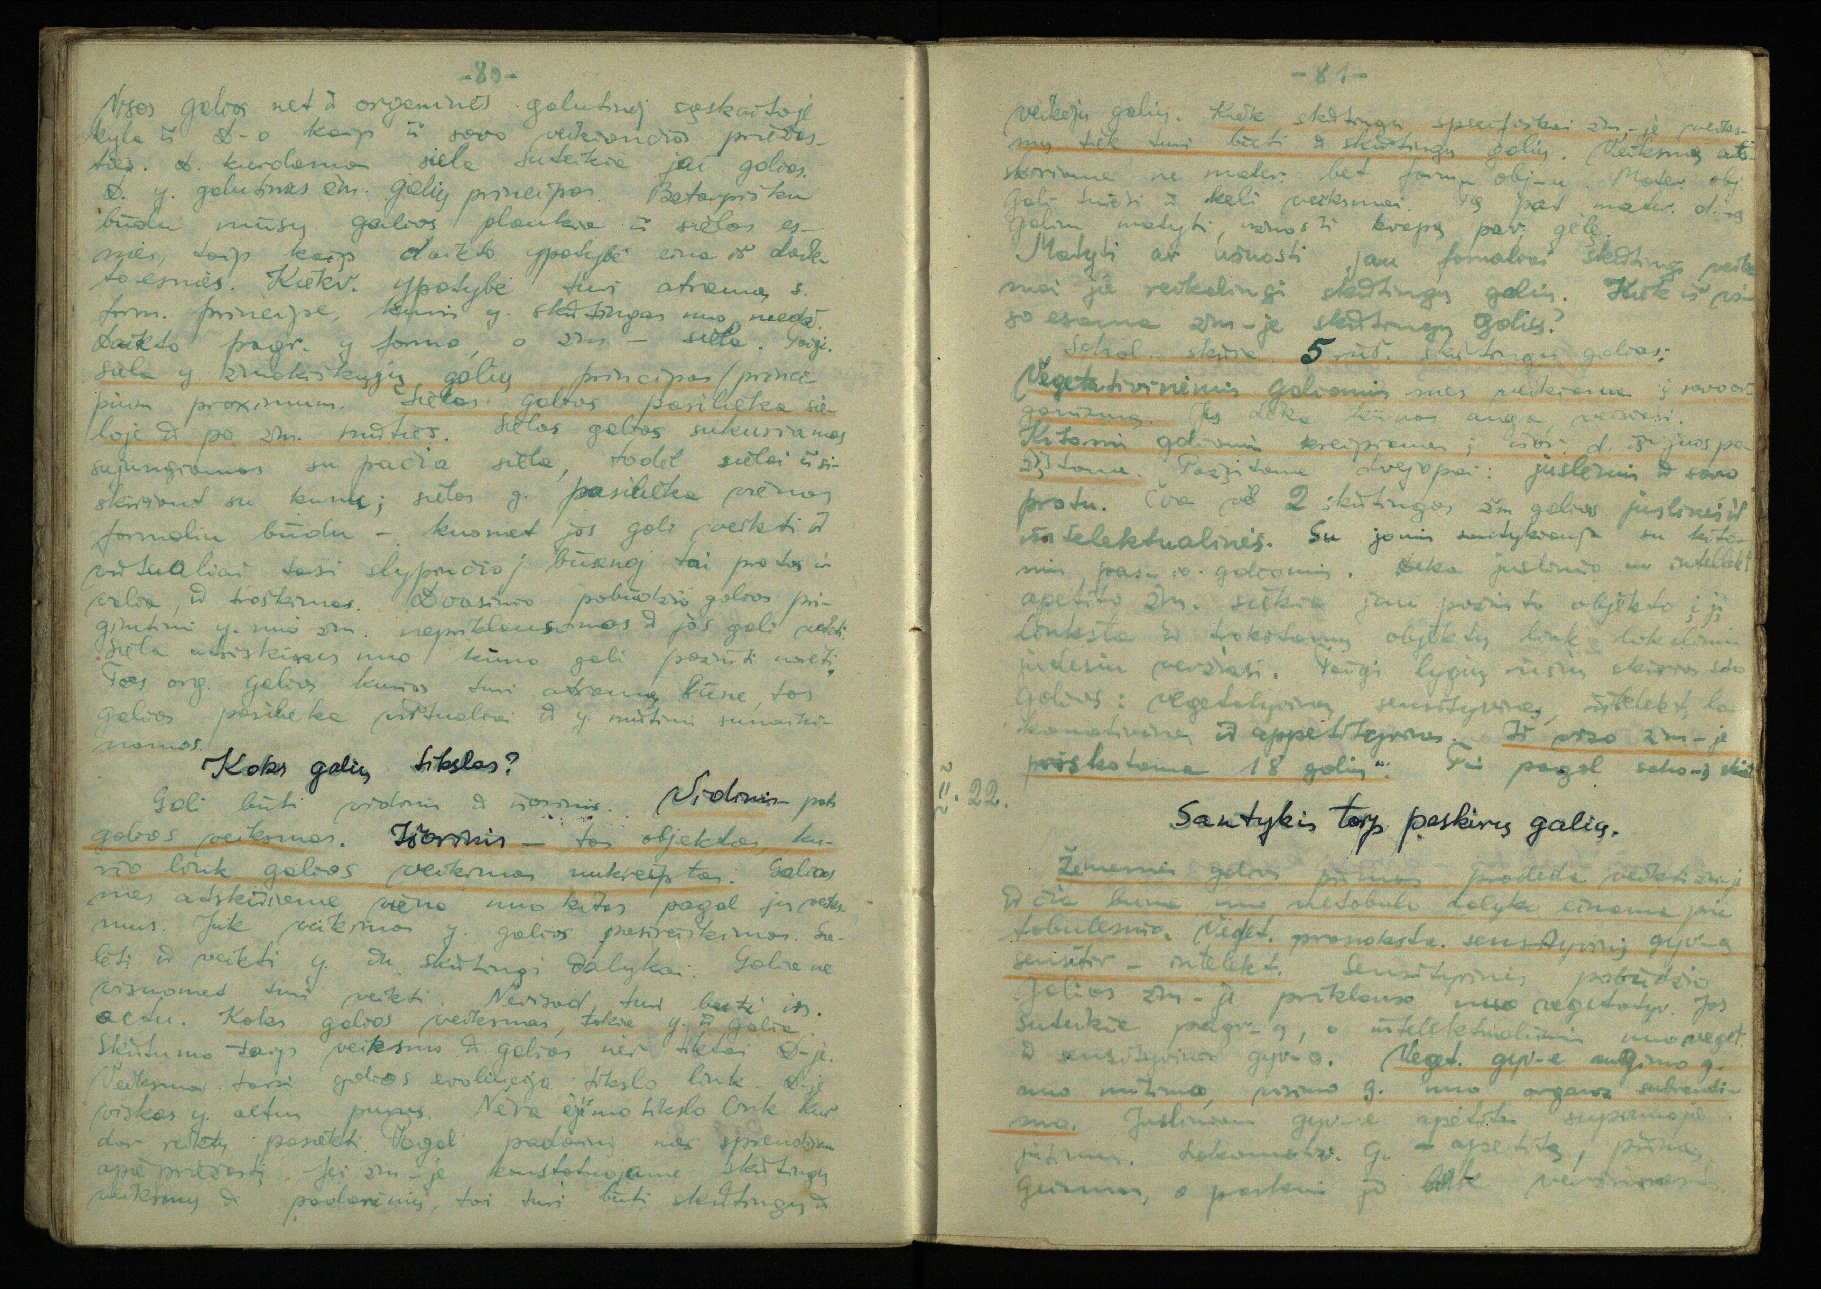 -80-
Visos galios net ir organinės galutinėj sąskaitoj
kyla iš D-o kaip iš savo veikiančios priežas-
ties. D. kurdamas sielą suteikia jai galias.
D. y. galutinas žm. galių principas. Betarpišku
būdu mūsų galios plaukia iš sielos es-
mės, taip kaip daikto ypatybė eina iš daik-
to esmės. Kiekv. ypatybė turi atramą s.
form. principe, kuris y. skirtingas nuo medž.
Daikto pagr. y forma, o žm - siela. Taigi
siela y žmogiškųjų galių principas (princi-
pium proximum. Sielos galios pasilieka sie-
loje ir po žm. mirties. Sielos galios sukuriamos
sujungiamos su pačia siela, todėl sielai išsi-
skiriant su kūnu; sielos g. pasilieka vienos
formaliu būdu - kuomet jos gali veikti ir
virtualiai tarsi slypinčioj būsenoj tai protas ir
valia, ir troškimas. Dvasinio pobūdžio galios pri-
gimtimi y. nuo žm. nepriklausomos ir jos gali veikti.
Siela atsiskyrus nuo kūno gali pažinti norėti.
Tos org. galios kurios turi atramą kūne, tos
galios pasilieka virtualiai ir y. mirtimi sunaiki-
namos.
Koks galių tikslas?
Gali būti vidinis ir išorinis. Vidinis - pats
galios veiksmas. Išorinis - tas objektas, ku-
rio link galios veikimas nukreiptas. Galias
mes atskiriame viena nuo kitos pagal jų veiks-
mus. Juk veikimas y. galios pasireiškimas. Ga-
lėti ir veikti y. du skirtingi dalykai. Galia ne
visuomet turi veikti. Nevisad turi būti in
actu. Koks galios veiksmas, tokia y. ir galia.
Skirtumo tarp veiksmo ir galios nėr tiktai D-je.
Veiksmas tarsi galios evoliucija tikslo link. D-je
viskas y. actus purus. Nėra ėjimo tikslo link kur
dar reiktų pasiekti. Pagal padarinį mes sprendžiam
apie priežastį. Jei žm-je konstatuojame skirtingų
veiksmų ir padarinių, tai turi būti skirtingų ir
-81-
veikėjų galių. Kiek skirtingų specifiškai žm-je veiks-
mų tiek turi būti ir skirtingų galių. Veiksmą at-
skiriame ne mater. bet formą obj-u. Mater. obj
gali turėti ir keli veiksmai. Tą pat mater. d.
galim matyti, užuosti kvapą pav. gėlę.
Matyti ar užuosti jau formaliai skirtingi veiks-
mai jie reikalingi skirtingų galių. Kiek iš vi-
so esama žm-je skirtingų galių?
Schol. skiria 5 rūš. skirtingų galias:
Vegetativinėmis galiomis mes veikiame į savo or-
ganizmą. Jų dėka kūnas auga, veisiasi.
Kitomis galiomis kreipiamės į išor. d. ir juos pa-
žįstame. Pažįstame dvejopai: juslėmis ir savo
protu. Čia vėl 2 skirtingos žm galios juslinės ir
intelektualinės. Su jomis santykiauja su kito-
mis, galiomis. Dėka juslinio ar intelekt
apetito žm. siekia jau pažinto objekto į jį
linksta ir trokštamų objektų link lokaliniu
judesiu veržiasi. Taigi lygių rūšių skiriasi
galios: vegetatyvines, sensityvines, intelekt, lo-
komotivines ir appetityvines. Iš viso žm-je
priskaitoma 18 galių. Tai pagal schol-ų
22.
Santykis tarp paskirų galių.
Žemesnės galios pirmos pradeda veikti žm-je
ir čia buna nuo netobulo dalyko einama prie
tobulesnio. Veget. pranoksta sensityvinį gyv-ą
sensitiv - intelekt. Sensityvinės pobūdžio
galios žm-je priklauso nuo vegetatyv. Jos
suteikia pagr-ą, o intelektualinis nuo veget
ir sensityvinio gyv-o. Veget. gyv-e augimo g.
nuo mitimo, visimo g. nuo organo subrendi-
mo. Jusliniam gyv-e apetitas
jutimus. Lokomotiv. g. - apetitą, pirma
geismas, o paskui jo link veržimasis.